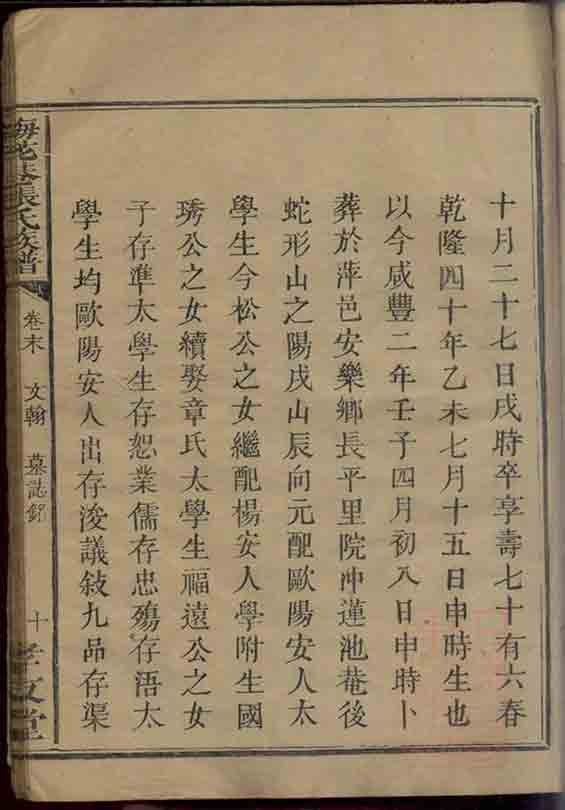 十月二十七日戌時卒享壽七十有六春
乾隆四十年乙未七月十五日申時生也
以今咸豐二年壬子四月初八日申時卜
葬於萍邑安樂鄉長平里院冲蓮池菴後
蛇形山之陽戌山辰向元配歐陽安人太
學生今松公之女繼配楊安人學附生國
琇公之女續娶章氏太學生福遠公之女
子存準太學生存恕業儒存忠殤存浯太
學生均歐陽安人出存浚議敍九品存渠
張氏族譜
卷末 文翰 墓誌銘
十
孝友堂